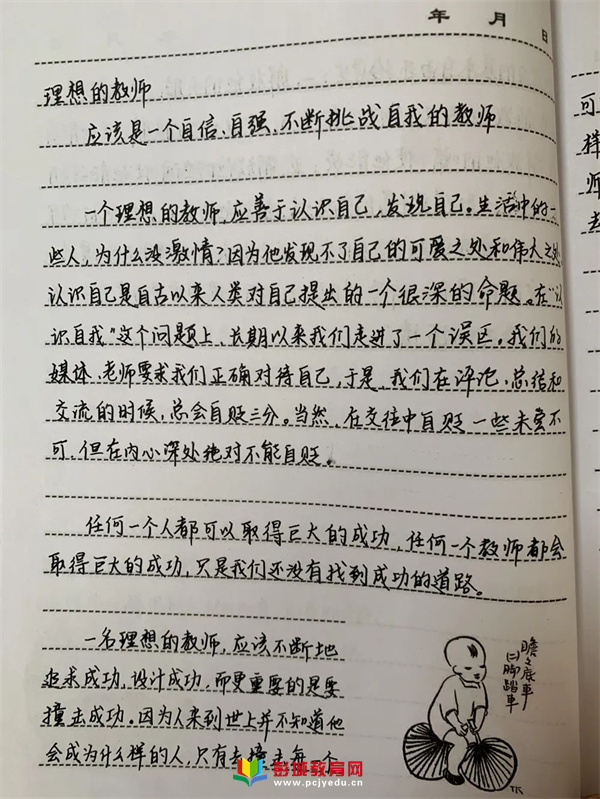 年 月 日
理想的教师
应该是一个自信、自强、不断挑战自我的教师
一个理想的教师,应善于认识自己,发现自己。生活中的一
些人,为什么没激情?因为他发现不了自己的可爱之处和伟大之处
认识自己是自古以来人类对自己提出的一个很深的命题。在“认
识自我”这个问题上,长期以来我们走进了一个误区。我们的
媒体、老师要求我们正确对待自己,于是,我们在评论、总结和
交流的时候,总会自贬三分。当然,在交往中自贬一些未尝不
可,但在内心深处绝对不能自贬。
任何一个人都可以取得巨大的成功,任何一个教师都会
取得巨大的成功,只是我们还没有找到成功的道路。
一名理想的教师,应该不断地
追求成功,设计成功,而更重要的是要
撞击成功。因为人来到世上并不知道他
会成为什么样的人,只有去撞击每一个
瞻瞻底車
(二)脚踏車
TK
可
样
师
去
彭城教育网
www.pcjyedu.cn